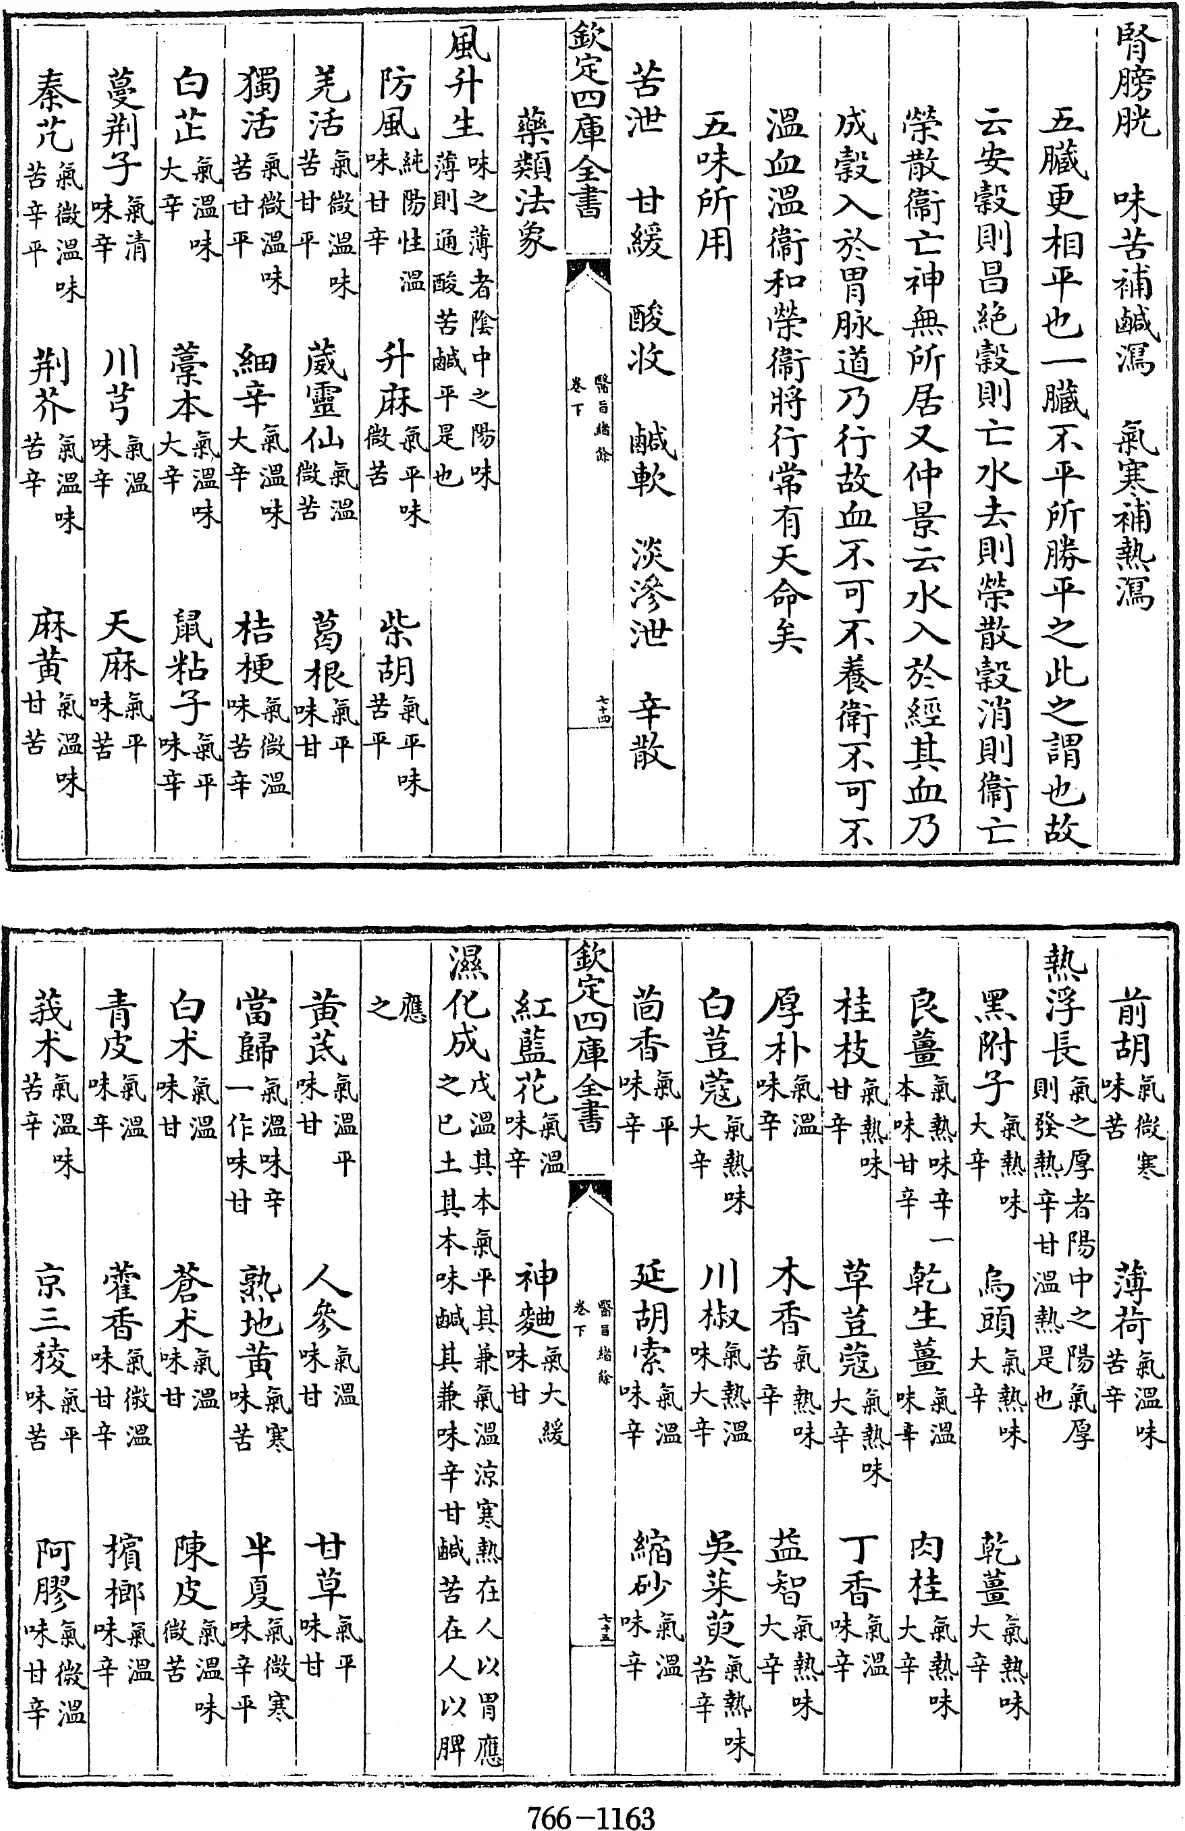 腎膀胱　味苦補鹹瀉　氣寒補熱瀉
五臟更相平也一臟不平所勝平之此之謂也故
云安穀則昌絶穀則亡水去則榮散穀消則衞亡
榮散衞亡神無所居又仲景云水入於經其血乃
成穀入於胃脉道乃行故血不可不養衛不可不
溫血溫衞和榮衞將行常有天命矣
五味所用
苦泄　甘緩　酸收　鹹軟　淡滲泄　辛散
欽定四庫全書　醫旨緒餘　卷下　七十四
藥類法象
風升生　味之薄者陰中之陽味薄則通酸苦鹹平是也
防風　純陽性溫味甘辛　升麻　氣平味微苦　柴胡　氣平味苦平
羌活　氣微溫味苦甘平　葳靈仙　氣溫微苦　葛根　氣平味甘
獨活　氣微溫味苦甘平　細辛　氣溫味大辛　桔梗　氣微溫味苦辛
白芷　氣溫味大辛　藁本　氣溫味大辛　鼠粘子　氣平味辛
蔓荆子　氣清味辛　川芎　氣溫味辛　天麻　氣平味苦
秦艽　氣微溫味苦辛平　荆芥　氣溫味苦辛　麻黄　氣溫味甘苦
前胡　氣微寒味苦　薄荷　氣溫味苦辛
熱浮長　氣之厚者陽中之陽氣厚則發熱辛甘溫熱是也
黑附子　氣熱味大辛　烏頭　氣熱味大辛　乾薑　氣熱味大辛
良薑　氣熱味辛一本味甘辛　乾生薑　氣溫味辛　肉桂　氣熱味大辛
桂枝　氣熱味甘辛　草荳蔻　氣熱味大辛　丁香　氣溫味辛
厚朴　氣溫味辛　木香　氣熱味苦辛　益智　氣熱味大辛
白荳蔻　氣熱味大辛　川椒　氣熱溫味大辛　吳茱萸　氣熱味苦辛
茴香　氣平味辛　延胡索　氣溫味辛　縮砂　氣溫味辛
欽定四庫全書　醫旨緒餘　卷下　七十五
紅藍花　氣溫味辛　神麯　氣大緩味甘
濕化成　戊溫其本氣平其兼氣溫涼寒熱在人以胃應之巳土其本味鹹其兼味辛甘鹹苦在人以脾
應之
黄芪　氣溫平味甘　人參　氣溫味甘　甘草　氣平味甘
當歸　氣溫味辛一作味甘　熟地黄　氣寒味苦　半夏　氣微寒味辛平
白术　氣溫味甘　蒼术　氣溫味甘　陳皮　氣溫味微苦
青皮　氣溫味辛　藿香　氣微溫味甘辛　檳榔　氣溫味辛
莪术　氣溫味苦辛　京三稜　氣平味苦　阿膠　氣微溫味甘辛
766-1163